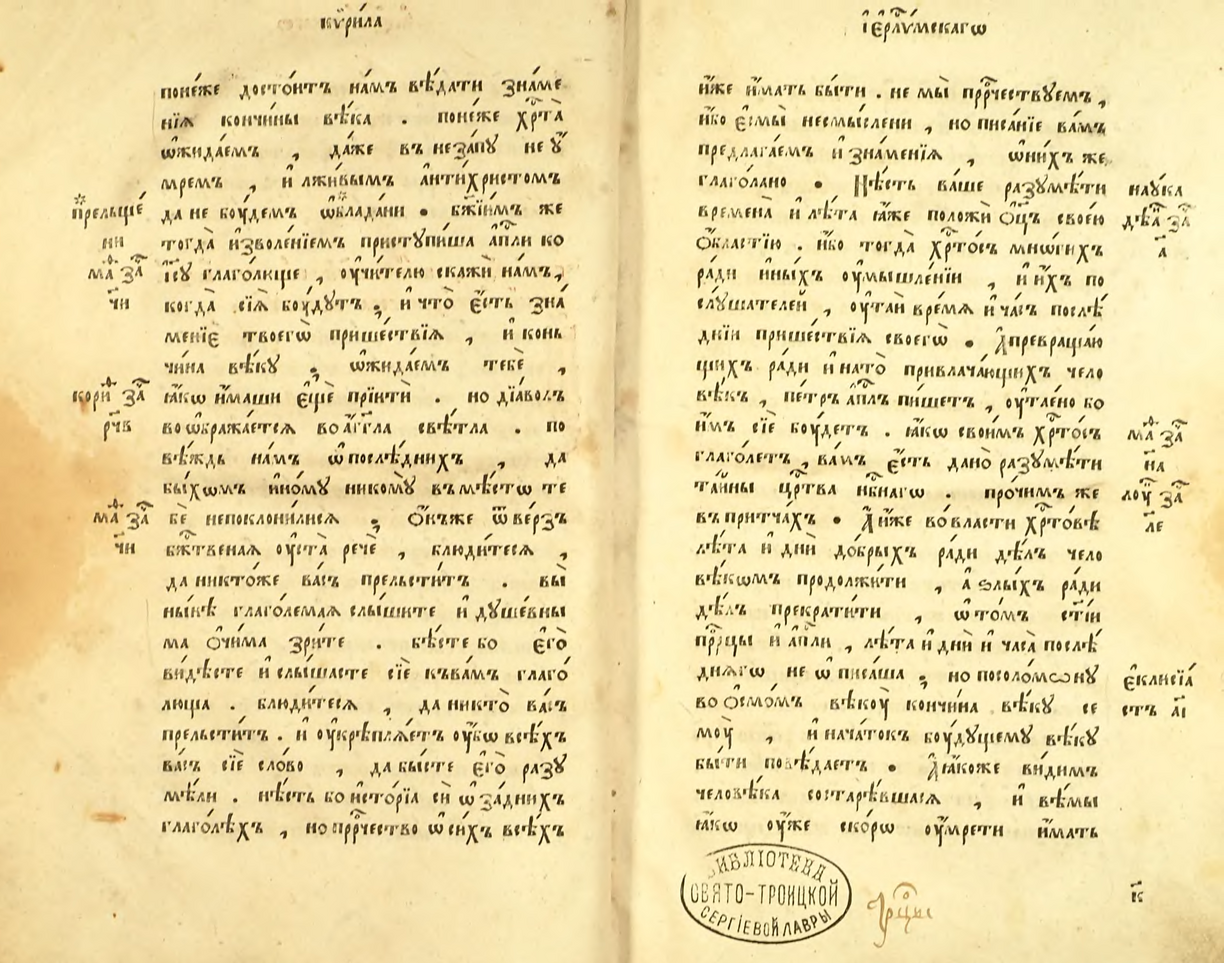 кѷри́ла
поне́же досто́итъ на́мъ вѣ́дати зна́ме
нїѧ кончи́ны вѣ́ка . поне́же хр҇та̀
ѡ҆жида́емъ , да́же въ неза́пꙋ не ᲂу҆́
мремъ , и҆ лжи́вымъ а҆нти́христомъ
да не бꙋ́демъ ѡ҆блада́ни . бж҃їимъ же
тогда̀ и҆зволе́нїемъ пристꙋпи́ша а҆пⷭ҇ли ко
і҆с҃ꙋ глаго́люще , ᲂу҆чи́телю скажѝ на́мъ,
когда̀ сїѧ̀ бꙋ́дꙋтъ ; и҆ что̀ є҆́сть зна́
менїе твоегѡ̀ прише́ствїѧ , и҆ конь
чи́на вѣ́кꙋ . ѡ҆жида́емъ тебѐ ,
ꙗ҆́кѡ и҆́маши є҆щѐ прїитѝ . но дїа́волъ
воѡбража́етсѧ во а҆́гг҃ла свѣ́тла . по
вѣ́ждь на́мъ ѡ҆ послѣ́днихъ , да
бы́хѡмъ и҆но́мꙋ никомꙋ̀ въмѣ́стѡ те
бѐ непоклони́лисѧ ; Ѻ҆́нъже ѿве́рзъ
бж҃твеная ᲂу҆ста̀ речѐ , блюди́тесѧ ,
да никто́же ва́съ прельсти́тъ . вы̀
ны́нѣ глаго́лемаѧ слы́шите и҆ дꙋше́вны
ма ѻ҆чи́ма зри́те . бѣ́сте бо є҆го̀
ви́дѣсте и҆ слы́шасте сїѐ къва́мъ глаго́
люща . блюди́тесѧ , да никто̀ ва́съ
прельсти́тъ . и҆ ᲂу҆крѣплѧ́етъ ᲂу҆́бѡ всѣ́хъ
ва́съ сїѐ сло́во , да бы́сте є҆го̀ разꙋ
мѣ́ли . нѣ́сть бо и҆сто́рїа сѝ ѡ҆ за́днихъ
глаго́лѣхъ , но прⷪ҇рчество ѡ҆ си́хъ всѣ́хъ
прельще́
ни
маⷴ҇ заⷱ҇
ч҃и
кориⷴ҇ заⷱ҇
рч҃в
маⷴ҇ заⷱ҇
ч҃и
і҆ерлⷭ҇и́мскагѡ
и҆́же и҆́мать бы́ти . не мы̀ прⷪ҇рчествꙋемъ ,
ꙗ҆́ко є҆смы̀ несмы́слени , но писа́нїе ва́мъ
предлага́емъ и҆ зна́менїѧ , ѡ҆ни́хъ же
глаго́лано . Нѣ́сть ва́ше разꙋмѣ́ти
времена̀ и҆ лѣ́та ꙗ҆́же положѝ ѻ҆ц҃ъ свое́ю
ѻ҆́бластїю . ꙗ҆́ко тогда̀ хр҇то́съ мнѡ́гихъ
ра́ди и҆ны́хъ ᲂу҆мышле́нїи , и҆ и҆́хъ по
слꙋ́шателей , ᲂу҆таѝ вре́мѧ и҆ ча́съ послѣ́
днїи прише́ствїѧ своегѡ̀ . А҆ превраща́ю
щихъ ра́ди и҆ на то̀ привлача́ющихъ чело
вѣ́къ , пе́тръ а҆пⷭ҇лъ пи́шетъ , ᲂу҆тае́но бо
и҆́мъ сїѐ бꙋ́детъ . ꙗ҆́кѡ свои́мъ хр҇то́съ
глаго́летъ , ва́мъ є҆́сть дано̀ разꙋмѣ́ти
та́йны црⷭ҇тва нб҃нагѡ . про́чимъ же
въ при́тчахъ . А҆́ и҆́же во вла́сти хр҇то́вѣ
лѣ́та и҆ дни́й до́брыхъ ра́ди дѣ́лъ чело
вѣ́кѡмъ продолжи́ти , а҆ ѕлы́хъ ра́ди
дѣ́лъ прекрати́ти , ѡ҆ то́мъ ст҃і́и
прⷪ҇рцы и҆ а҆пⷭ҇ли , лѣ́та и҆ дни́й и҆ часа̀ послѣ́
днѧгѡ не ѡ҆писа́ша ; но посоло́мѡнꙋ
во ѻ҆смо́мъ вѣ́кᲂу кончи́на вѣ́кꙋ се
мᲂу̀ , и҆ нача́токъ бꙋ́дꙋщемꙋ вѣ́кꙋ
бы́ти повѣ́даетъ . А҆ ꙗ҆́коже ви́димъ
человѣ́ка состарѣ́вшасѧ , и҆ вѣ́мы
ꙗ҆́кѡ ᲂу҆́же ско́рѡ ᲂу҆мре́ти и҆́мать
наꙋка
дѣѧⷩ҇ заⷱ҇
а҃
маⷴ҇ заⷱ҇
н҃а
лᲂуⷦ҇ заⷱ҇
л҃е
є҆клисїа́
стъ а҃і
к҃
БИБЛІОТЕКА
СВЯТО-ТРОИЦКОЙ
СЕРГІЕВОЙ ЛАВРЫ